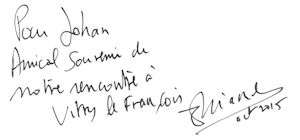 Pour Johan
Amical Souvenir de
notre rencontre à
Vitry le François
oct 2015